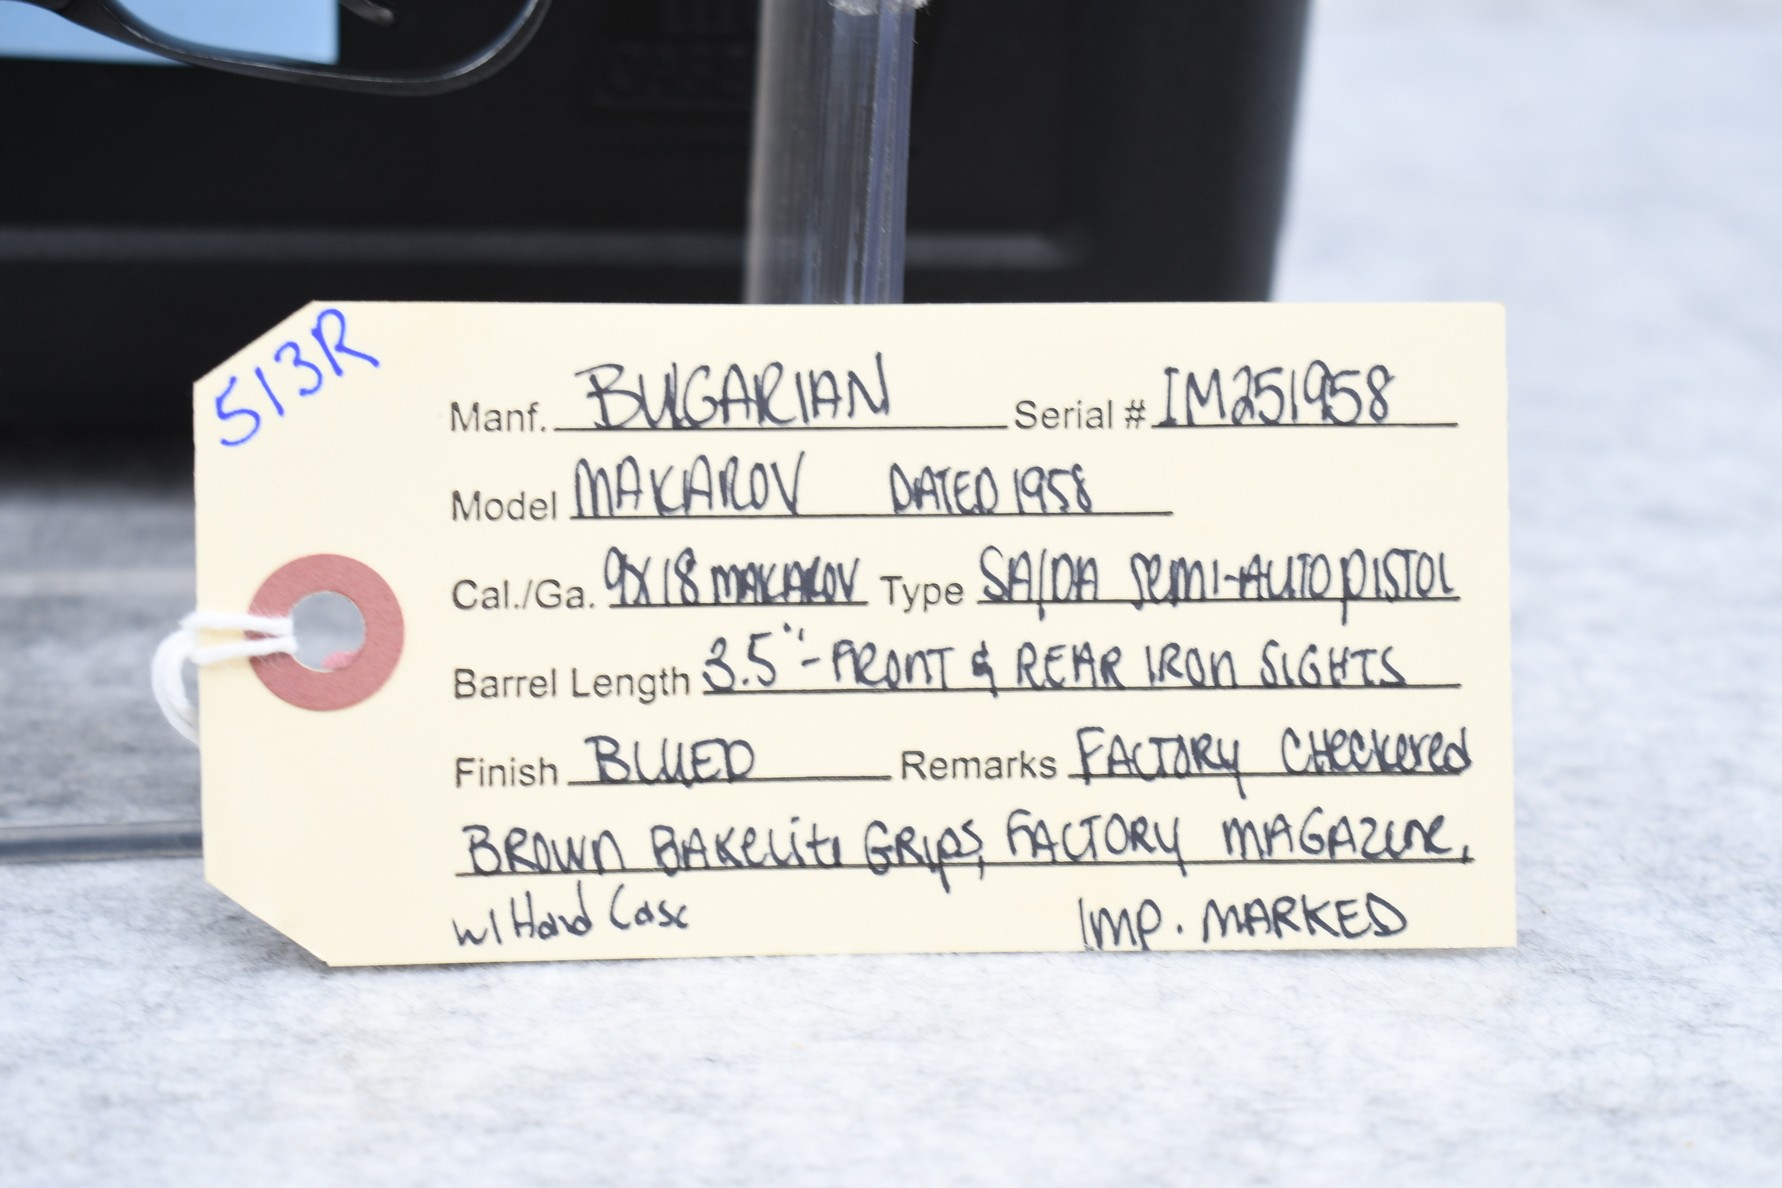 513R
Manf. BULGARIAN Serial # IM251958
Model MAKAROV DATED 1958
Cal./Ga. 9X18 MAKAROV Type SA/DA SEMI-AUTO PISTOL
Barrel Length 3.5" - FRONT & REAR IRON SIGHTS
Finish BLUED Remarks FACTORY CHeckered
BROWN BAKeliTe GRips, FACTORY MAGAZINE,
w/ Hard Case IMP. MARKED